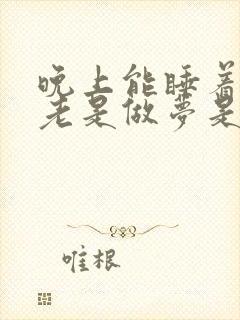 晚上能睡着
老是做梦是
唯根